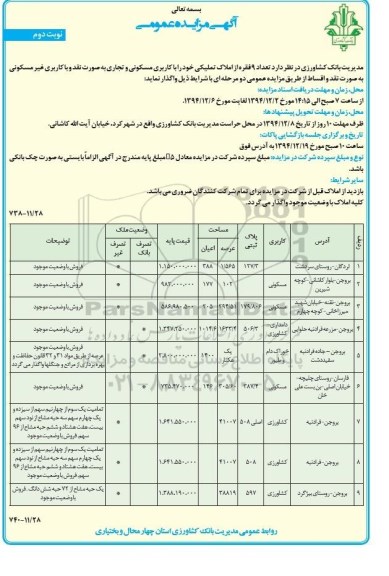 بسمه تعالی
آگهی مزایده عمومی
نوبت دوم
مدیریت بانک کشاورزی در نظر دارد تعداد ۹ فقره از املاک تملیکی خود را با کاربری مسکونی و تجاری به صورت نقد و با کاربری غیر مسکونی
به صورت نقد و اقساط از طریق مزایده عمومی دو مرحله ای با شرایط ذیل واگذار نماید:
محل، زمان و مهلت دریافت اسناد مزایده:
از ساعت ۷ صبح الی ۱۴:۱۵ مورخ ۱۳۹۴/۱۲/۲ لغایت مورخ ۱۳۹۴/۱۲/۶
محل، زمان و مهلت تحویل پیشنهادها:
ظرف مهلت ۱۰ روز از تاریخ ۱۳۹۴/۱۲/۸ در محل حراست مدیریت بانک کشاورزی واقع در شهرکرد، خیابان آیت الله کاشانی.
تاریخ و برگزاری جلسه بازگشایی پاکات:
ساعت ۱۰ صبح مورخ ۱۳۹۴/۱۲/۱۹ به آدرس فوق
نوع و مبلغ سپرده شرکت در مزایده: مبلغ سپرده شرکت در مزایده معادل ۵٪ مبلغ پایه مندرج در آگهی الزاماً بایستی به صورت چک بانکی
باشد.
سایر شرایط:
بازدید از املاک قبل از شرکت در مزایده برای تمام شرکت کنندگان ضروری می باشد.
کلیه املاک با وضعیت موجود واگذار می گردد.
۷۳۸-۱۱/۲۸
ردیف آدرس کاربری پلاک ثبتی مساحت عرصه اعیان قیمت پایه وضعیت ملک تصرف غیر تصرف بانک توضیحات
۱ لردگان- روستای سردشت ۱۳۷/۳ ۱/۵۶۵ ۳۸۸ ۱.۱۵۰.۰۰۰.۰۰۰ * فروش با وضعیت موجود
۲ بروجن- بلوار کاشانی- کوچه شیرین مسکونی ۱۰۲ ۱۷۷ ۹۸۲.۰۰۰.۰۰۰ * فروش با وضعیت موجود
۳ بروجن- نقنه- خیابان شهید میرزاخانی- کوچه چهارم مسکونی ۱۷۹.۸۰۶ ۲۹۴/۵۱ ۲۰۵ ۵۸۶.۹۸۰.۵۰۰ * فروش با وضعیت موجود
۴ بروجن- مزرعه فرادنبه جلوانی دامداری- کشاورزی ۵۰۶/۳ ۱۶۳۳/۴ ۱۰۱۴/۶ ۱.۳۴۷.۲۵۰.۰۰۰ * فروش با وضعیت موجود
۵ بروجن- جاده فرادنبه سفیددشت خوراک دام و طیور یک هکتار ۱۴۰۰ ۲.۸۰۰.۰۰۰.۰۰۰ فروش با وضعیت موجود
عرصه از طریق مواد ۳۱ و ۳۲ قانون حفاظت و بهره برداری از مراتع و جنگلها واگذار می گردد
۶ فارسان- روستای چلیچه- خیابان اصلی- بن بست علی خان مسکونی ۳۸۷/۴ ۳۰۵/۶۰ ۱۴۶ ۷۳۵.۴۷۰.۰۰۰ * فروش با وضعیت موجود
۷ بروجن- فرادنبه کشاورزی ۵۰۸ اصلی ۴۱۰۰۷ ۱.۶۴۱.۵۵۰.۰۰۰ * تمامیت یک سوم از چهارنیم سهم از سیزده و یک چهارم سهم سه حبه مشاع از نود سهم بیست، هفت هشتاد و ششم حبه مشاع از ۹۶ سهم، فروش با وضعیت موجود
۸ بروجن- فرادنبه کشاورزی ۵۰۸ ۴۱۰۰۷ ۱.۶۴۱.۵۵۰.۰۰۰ * تمامیت یک سوم از چهارنیم سهم از سیزده و یک چهارم سهم سه حبه مشاع از نود سهم بیست، هفت هشتاد و ششم حبه مشاع از ۹۶ سهم، فروش با وضعیت موجود
۹ بروجن- روستای بیژگرد کشاورزی ۵۹۷ ۳۸۸۱۹ ۱.۳۸۸.۱۹۰.۰۰۰ * یک حبه مشاع از ۷۲ حبه شش دانگ. فروش با وضعیت موجود
۷۴۰-۱۱/۲۸
روابط عمومی مدیریت بانک کشاورزی استان چهارمحال و بختیاری